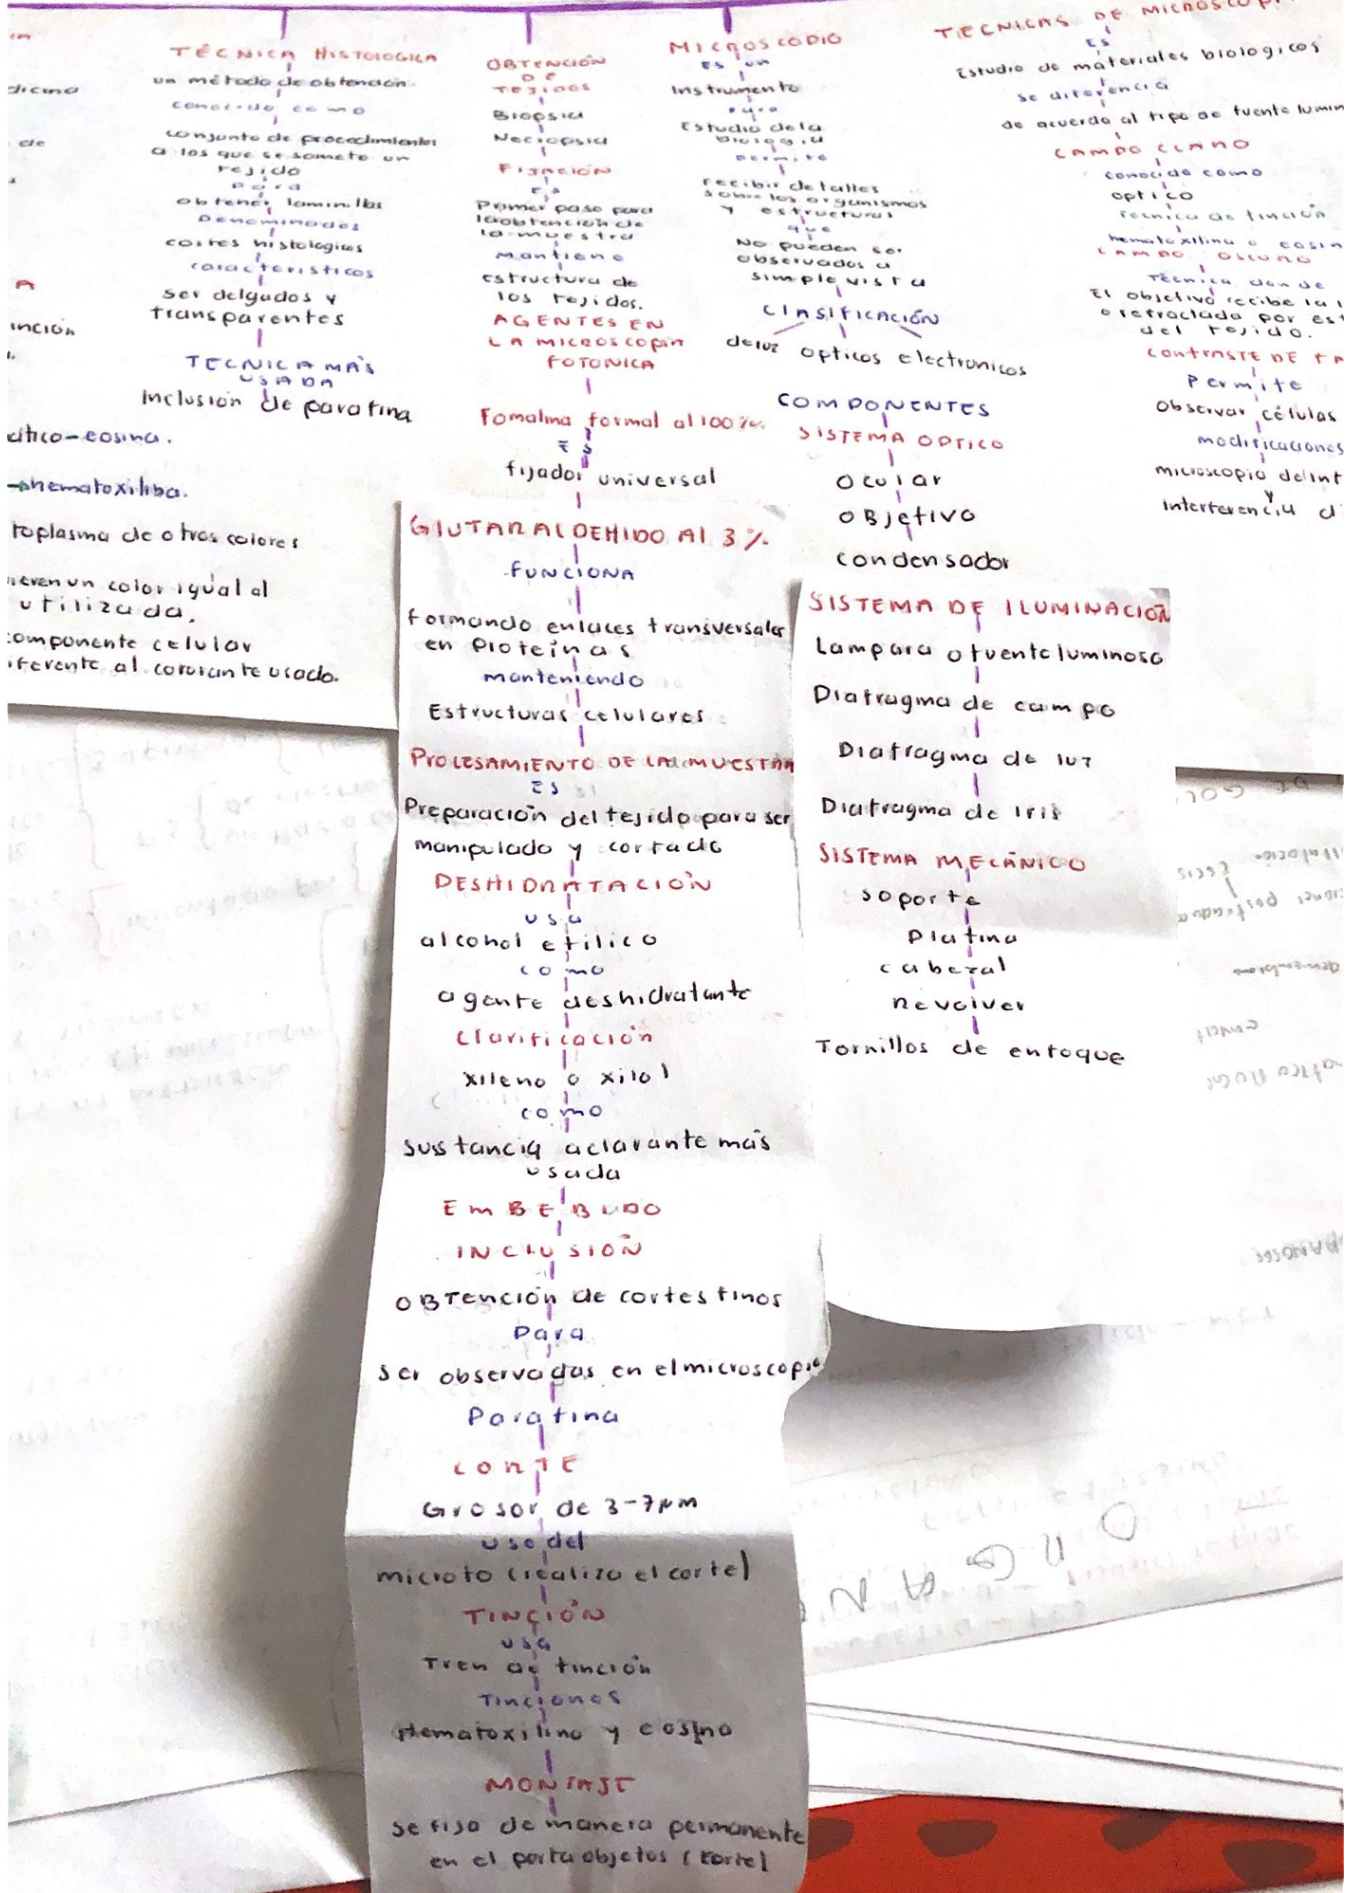 dicina
de
A
inción
citico-eosina.
hematoxiliba.
toplasma de otros colores
un color igual al
utilizada.
componente celular
iferente al cororante usado.
TÉCNICA HISTOLOGICA
un método de obtención
conocido como
conjunto de procedimientos
a los que se somete un
tejido
para
obtener laminillas
Denominados
cortes histologicos
caracteristicos
ser delgados y
transparentes
TECNICA MAS
USADA
Inclusión de parafina
OBTENCIÓN
DE
TEJIDOS
Biopsia
Necropsia
FIJACIÓN
ES
Primer paso para
la obtención de
la muestra
mantiene
estructura de
los tejidos.
AGENTES EN
LA MICROSCOPIA
FOTONICA
Fomalina formal al 100%.
ES
fijador universal
GLUTARALDEHIDO Al 3%
FUNCIONA
Formando enlaces transversales
en Proteínas
manteniendo
Estructuras celulares
PROCESAMIENTO DE LA MUESTRA
ES
Preparación del tejido para ser
manipulado y cortado
DESHIDRATACIÓN
usa
alcohol etilico
como
agente deshidratante
Clarificación
xileno o xilol
como
sustancia aclarante más
usada
EMBEBIDO
INCLUSIÓN
OBTención de cortes finos
Para
ser observadas en el microscopio
Parafina
CORTE
Grosor de 3-7μm
uso del
microto (realiza el corte)
TINCIÓN
usa
Tren de tinción
Tinciones
Hematoxilina y eosina
MONTAJE
se fija de manera permanente
en el portaobjetos (corte)
MICROSCOPIO
ES un
Instrumento
para
Estudio de la
biología
permite
recibir detalles
sobre los organismos
y estructuras
que
No pueden ser
observados a
simple vista
CLASIFICACIÓN
de luz opticos electronicos
COMPONENTES
SISTEMA OPTICO
Ocular
OBjetivo
condensador
SISTEMA DE ILUMINACIÓN
Lampara o fuente luminosa
Diafragma de campo
Diafragma de luz
Diafragma de iris
SISTEMA MECÁNICO
soporte
Platina
cabezal
Revolver
Tornillos de enfoque
TECNICAS DE MICROSCOPI
ES
Estudio de materiales biologicos
se diferencia
de acuerdo al tipo de fuente lumin
CAMPO CLARO
conocido como
optico
Tecnica de tinción
hematoxilina o eosin
CAMPO OSCURO
Técnica donde
El objetivo recibe la l
o refractada por est
del tejido.
CONTRASTE DE FA
Permite
Observar células
modificaciones
microscopio de int
y
interferencia d